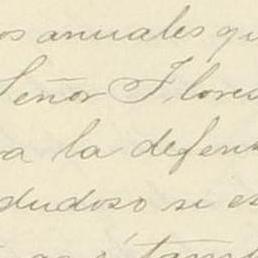 os anuales qu
Señor Flores
ra la defens
dudoso si es
tamp